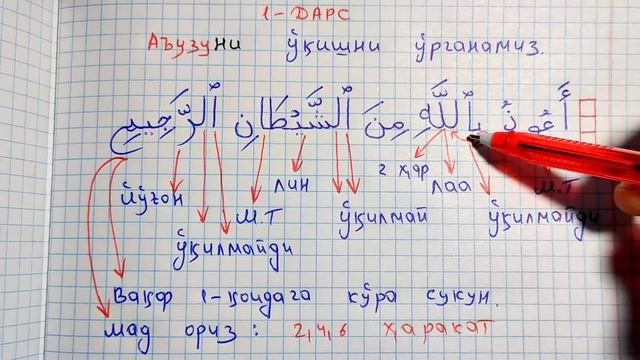 1-ДАРС
Аъузуни ўқишни ўрганамиз.
أَعُوذُ بِاللَّهِ مِنَ الشَّيْطَانِ الرَّجِيمِ
2 ҳар
лин лаа м.т
йўғон м.т ўқилмай ўқилмайди
ўқилмайди
Вақф 1-қоидага кўра сукун.
мад ориз: 2,4,6 ҳаракат